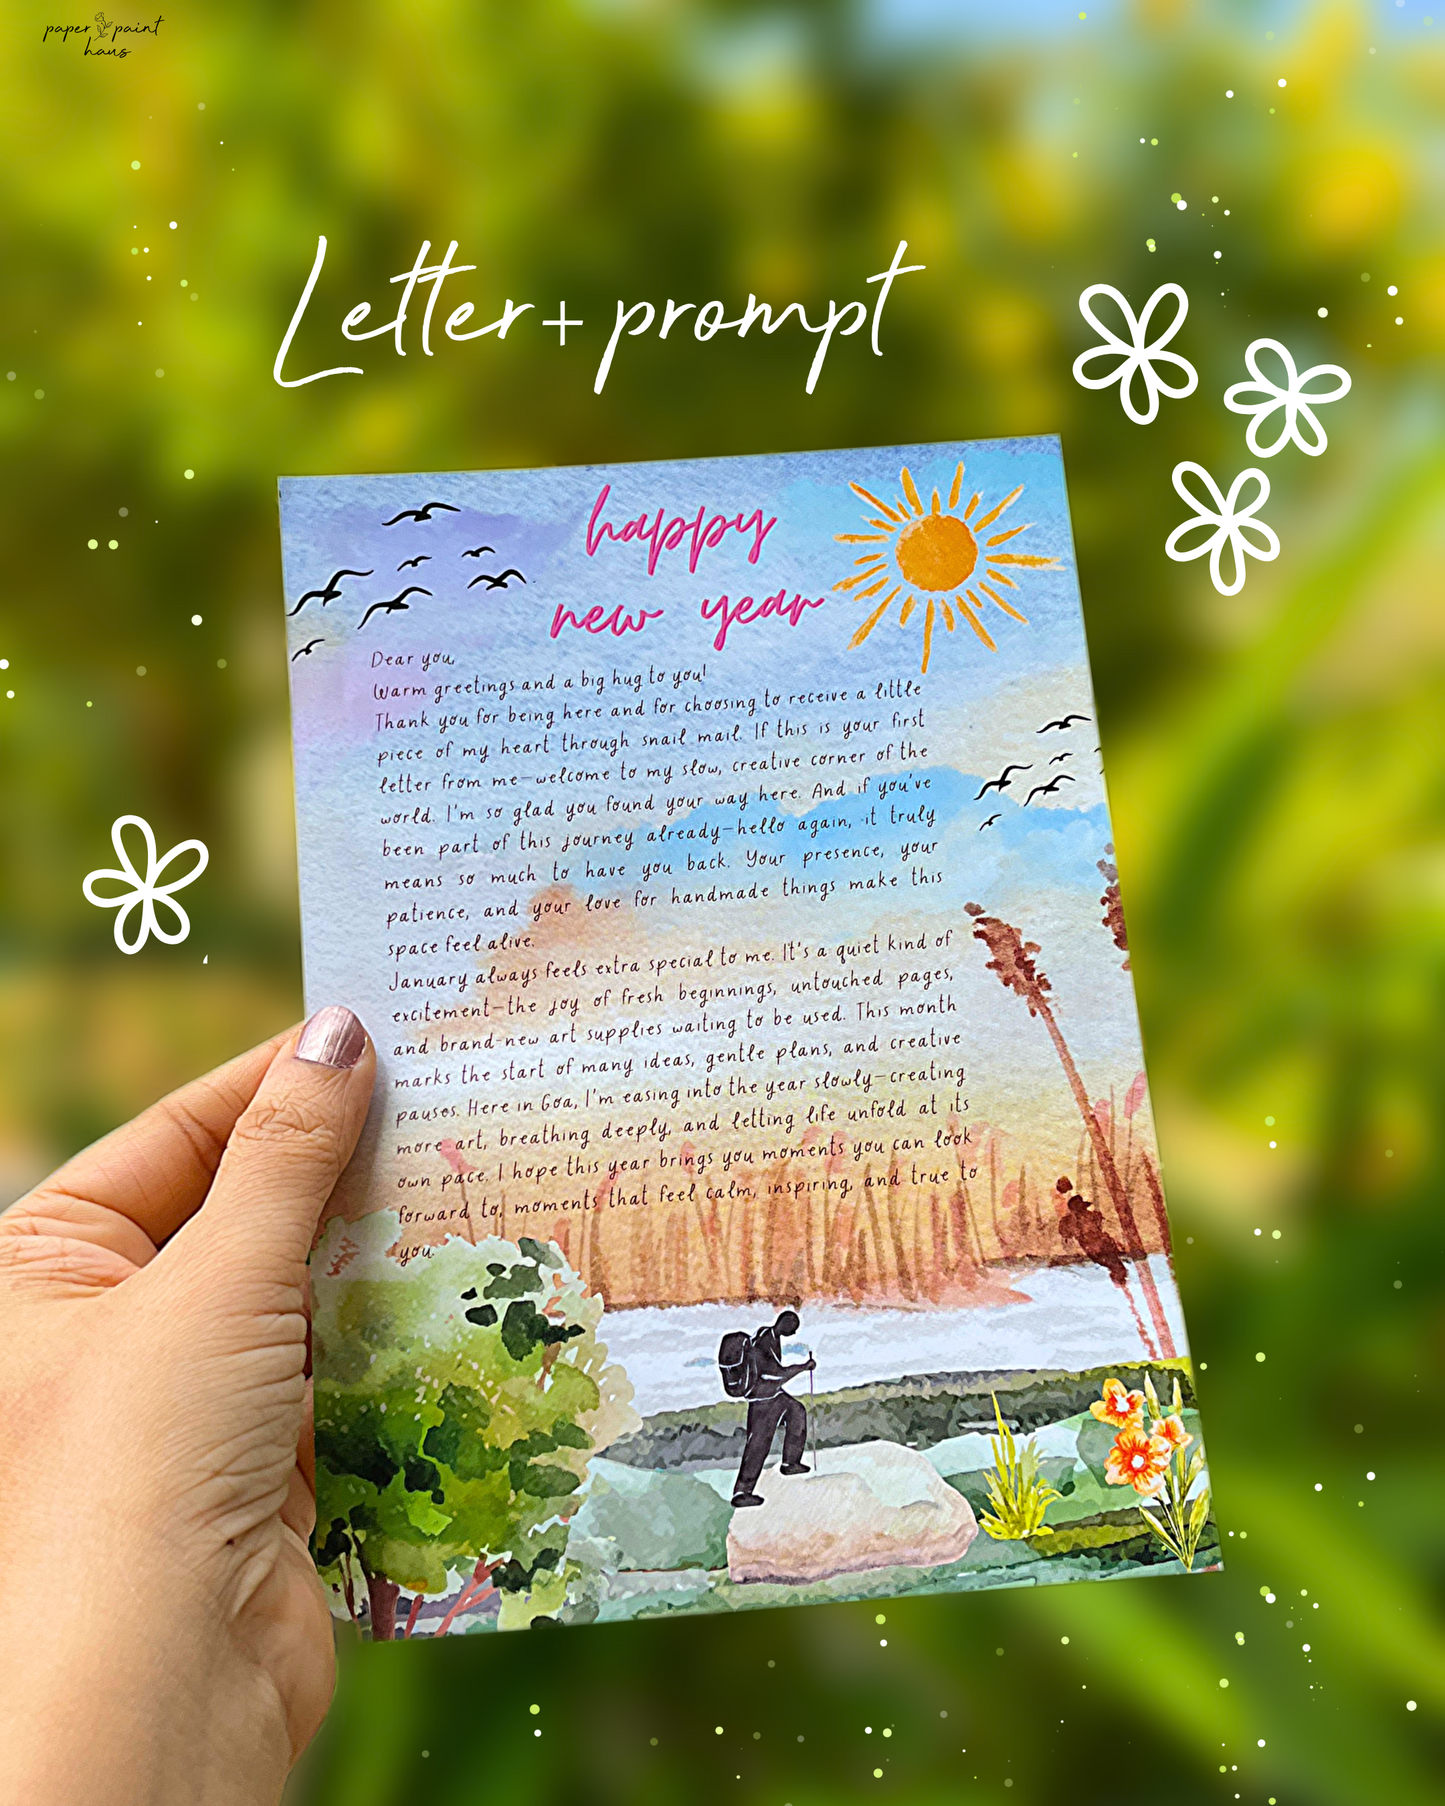 paper paint
haus
Letter+prompt
happy
new year
Dear you,
Warm greetings and a big hug to you!
Thank you for being here and for choosing to receive a little
piece of my heart through snail mail. If this is your first
letter from me—welcome to my slow, creative corner of the
world. I'm so glad you found your way here. And if you've
been part of this journey already—hello again, it truly
means so much to have you back. Your presence, your
patience, and your love for handmade things make this
space feel alive.
January always feels extra special to me. It's a quiet kind of
excitement—the joy of fresh beginnings, untouched pages,
and brand-new art supplies waiting to be used. This month
marks the start of many ideas, gentle plans, and creative
pauses. Here in Goa, I'm easing into the year slowly—creating
more art, breathing deeply, and letting life unfold at its
own pace. I hope this year brings you moments you can look
forward to, moments that feel calm, inspiring, and true to
you.